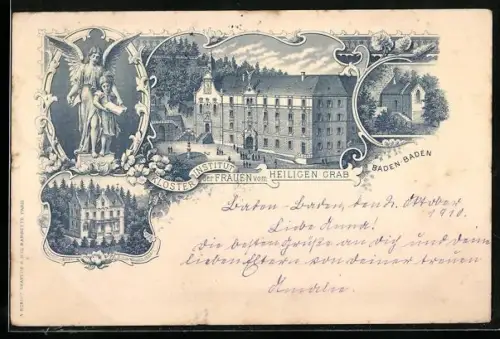 INSTITUT
KLOSTER der FRAUEN vom HEILIGEN GRAB
BADEN-BADEN
Baden-Baden, den 2. Oktober
1910.
Liebe Anna!
die besten Grüße an dich und deine
lieben Eltern von deiner treuen
Amalie.